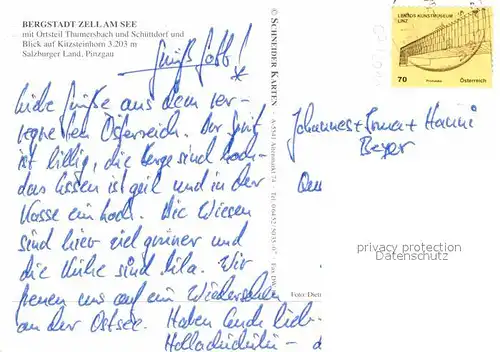 BERGSTADT ZELL AM SEE
mit Ortsteil Thumersbach und Schüttdorf und
Blick auf Kitzsteinhorn 3.203 m
Salzburger Land, Pinzgau
Grüß Gott!
liebe Grüße aus dem ver-
regneten Österreich. Der Sprit
ist billig, die Berge sind hoch -
das Essen ist geil und in der
Kasse ein Loch. Die Wiesen
sind hier viel grüner und
die Kühe sind lila. Wir
freuen uns auf ein Wiedersehen
an der Ostsee. Haben Euch lieb -
Holladihidi -
© SCHNEIDER KARTEN · A-5541 Altenmarkt 74 · Tel.
Foto: Diet
LENTOS KUNSTMUSEUM
LINZ
70
Österreich
Johannes + Irma + Hanni
Beyer
privacy protection
Datenschutz